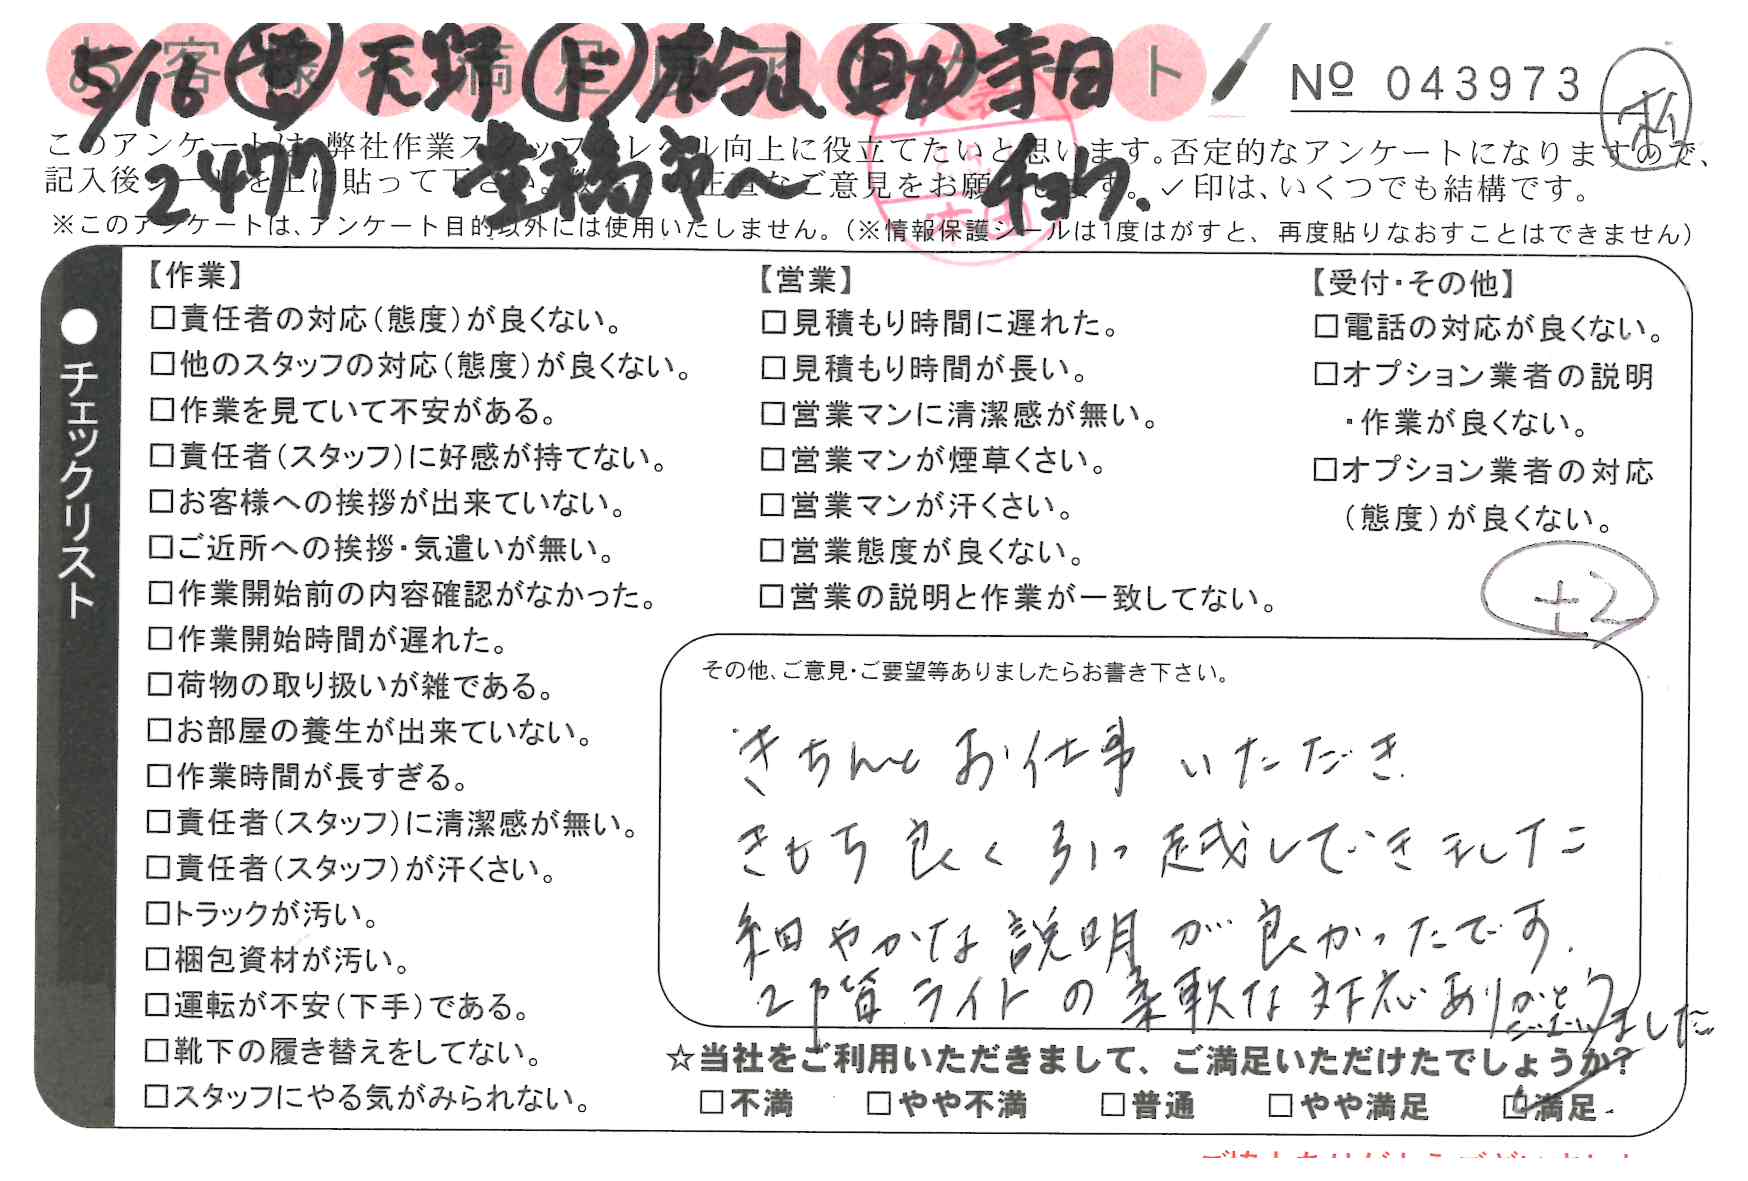 お客様不満足度アンケート
5/16 天野 寺田
No 043973
2477
このアンケートは、弊社作業スタッフのレベル向上に役立てたいと思います。否定的なアンケートになりますので、
記入後シールを上に貼って下さい。 正直なご意見をお願いします。✓印は、いくつでも結構です。
※このアンケートは、アンケート目的以外には使用いたしません。(※情報保護シールは1度はがすと、再度貼りなおすことはできません)
●チェックリスト
【作業】
□責任者の対応(態度)が良くない。
□他のスタッフの対応(態度)が良くない。
□作業を見ていて不安がある。
□責任者(スタッフ)に好感が持てない。
□お客様への挨拶が出来ていない。
□ご近所への挨拶・気遣いが無い。
□作業開始前の内容確認がなかった。
□作業開始時間が遅れた。
□荷物の取り扱いが雑である。
□お部屋の養生が出来ていない。
□作業時間が長すぎる。
□責任者(スタッフ)に清潔感が無い。
□責任者(スタッフ)が汗くさい。
□トラックが汚い。
□梱包資材が汚い。
□運転が不安(下手)である。
□靴下の履き替えをしてない。
□スタッフにやる気がみられない。
【営業】
□見積もり時間に遅れた。
□見積もり時間が長い。
□営業マンに清潔感が無い。
□営業マンが煙草くさい。
□営業マンが汗くさい。
□営業態度が良くない。
□営業の説明と作業が一致してない。
【受付・その他】
□電話の対応が良くない。
□オプション業者の説明
・作業が良くない。
□オプション業者の対応
(態度)が良くない。
±2
その他、ご意見・ご要望等ありましたらお書き下さい。
きちんとお仕事いただき
きもち良く引っ越しできました
細やかな説明が良かったです。
2階ライトの柔軟な対応ありがとうございました
☆当社をご利用いただきまして、ご満足いただけたでしょうか?
□不満 □やや不満 □普通 □やや満足 ☑満足